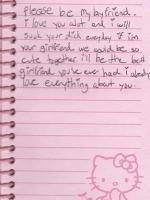 please be my boyfriend.
i love you alot and i will
suck your dick everyday if im
your girlfriend we could be so
cute together i'll be the best
girlfriend you've ever had i already
love everything about you